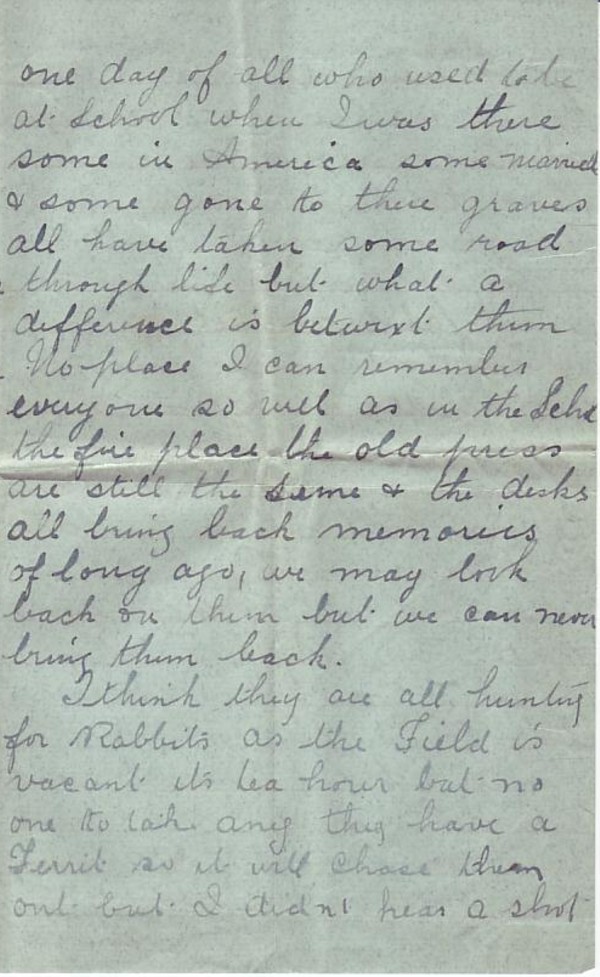 one day of all who used to be
at School when I was there
some in America some married
& some gone to there graves
all have taken some road
through life but what a
difference is betwixt them
No place I can remember
everyone so well as in the Scho
the fire place the old press
are still the same & the desks
all bring back memories
of long ago, we may look
back on them but we can never
bring them back.
I think they are all hunting
for Rabbits as the Field is
vacant its tea hour but no
one to take any they have a
Ferrit so it will chase them
out but I didn't hear a shot